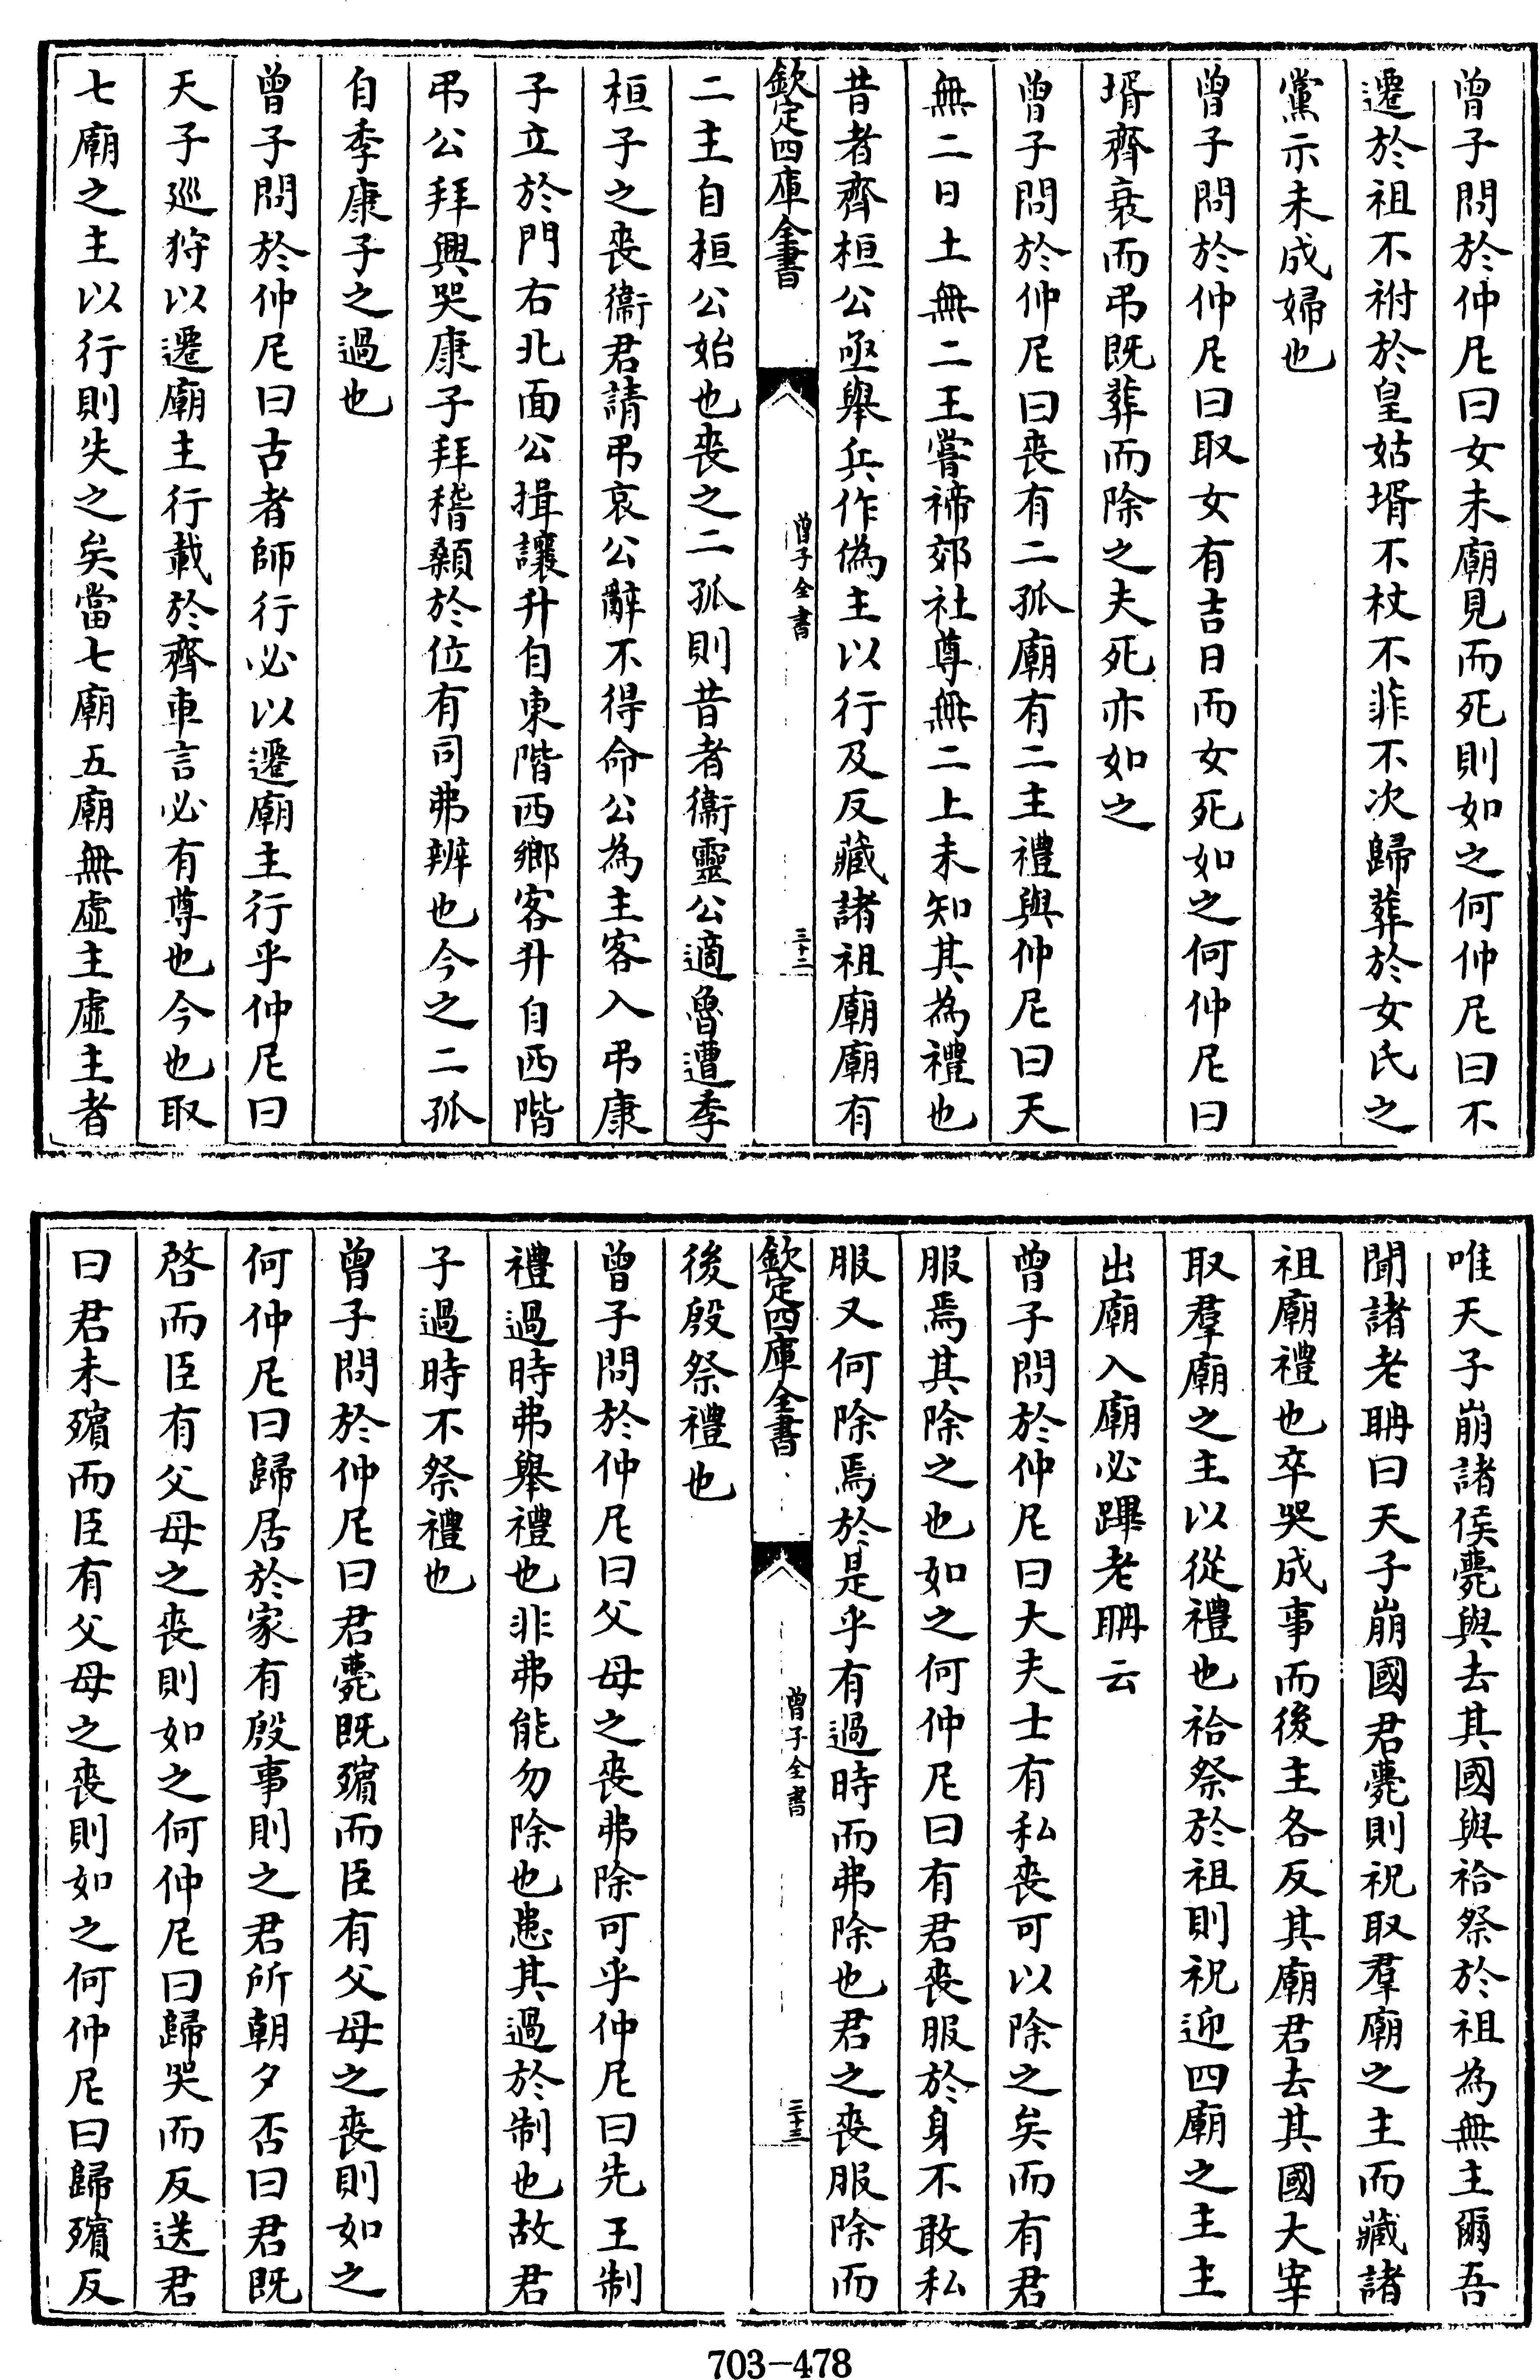 曾子問於仲尼曰女未廟見而死則如之何仲尼曰不
遷於祖不祔於皇姑壻不杖不菲不次歸葬於女氏之
黨示未成婦也
曾子問於仲尼曰取女有吉日而女死如之何仲尼曰
壻齊衰而弔既葬而除之夫死亦如之
曾子問於仲尼曰喪有二孤廟有二主禮與仲尼曰天
無二日土無二王嘗禘郊社尊無二上未知其為禮也
昔者齊桓公亟舉兵作偽主以行及反藏諸祖廟廟有
欽定四庫全書
曾子全書
三十二
二主自桓公始也喪之二孤則昔者衞靈公適魯遭季
桓子之喪衞君請弔哀公辭不得命公為主客入弔康
子立於門右北面公揖讓升自東階西鄉客升自西階
弔公拜興哭康子拜稽顙於位有司弗辨也今之二孤
自季康子之過也
曾子問於仲尼曰古者師行必以遷廟主行乎仲尼曰
天子廵狩以遷廟主行載於齊車言必有尊也今也取
七廟之主以行則失之矣當七廟五廟無虛主虛主者
唯天子崩諸侯薨與去其國與祫祭於祖為無主爾吾
聞諸老聃曰天子崩國君薨則祝取羣廟之主而藏諸
祖廟禮也卒哭成事而後主各反其廟君去其國大宰
取羣廟之主以從禮也祫祭於祖則祝迎四廟之主主
出廟入廟必蹕老聃云
曾子問於仲尼曰大夫士有私喪可以除之矣而有君
服焉其除之也如之何仲尼曰有君喪服於身不敢私
服又何除焉於是乎有過時而弗除也君之喪服除而
欽定四庫全書
曾子全書
三十三
後殷祭禮也
曾子問於仲尼曰父母之喪弗除可乎仲尼曰先王制
禮過時弗舉禮也非弗能勿除也患其過於制也故君
子過時不祭禮也
曾子問於仲尼曰君薨既殯而臣有父母之喪則如之
何仲尼曰歸居於家有殷事則之君所朝夕否曰君既
啓而臣有父母之喪則如之何仲尼曰歸哭而反送君
曰君未殯而臣有父母之喪則如之何仲尼曰歸殯反
703-478